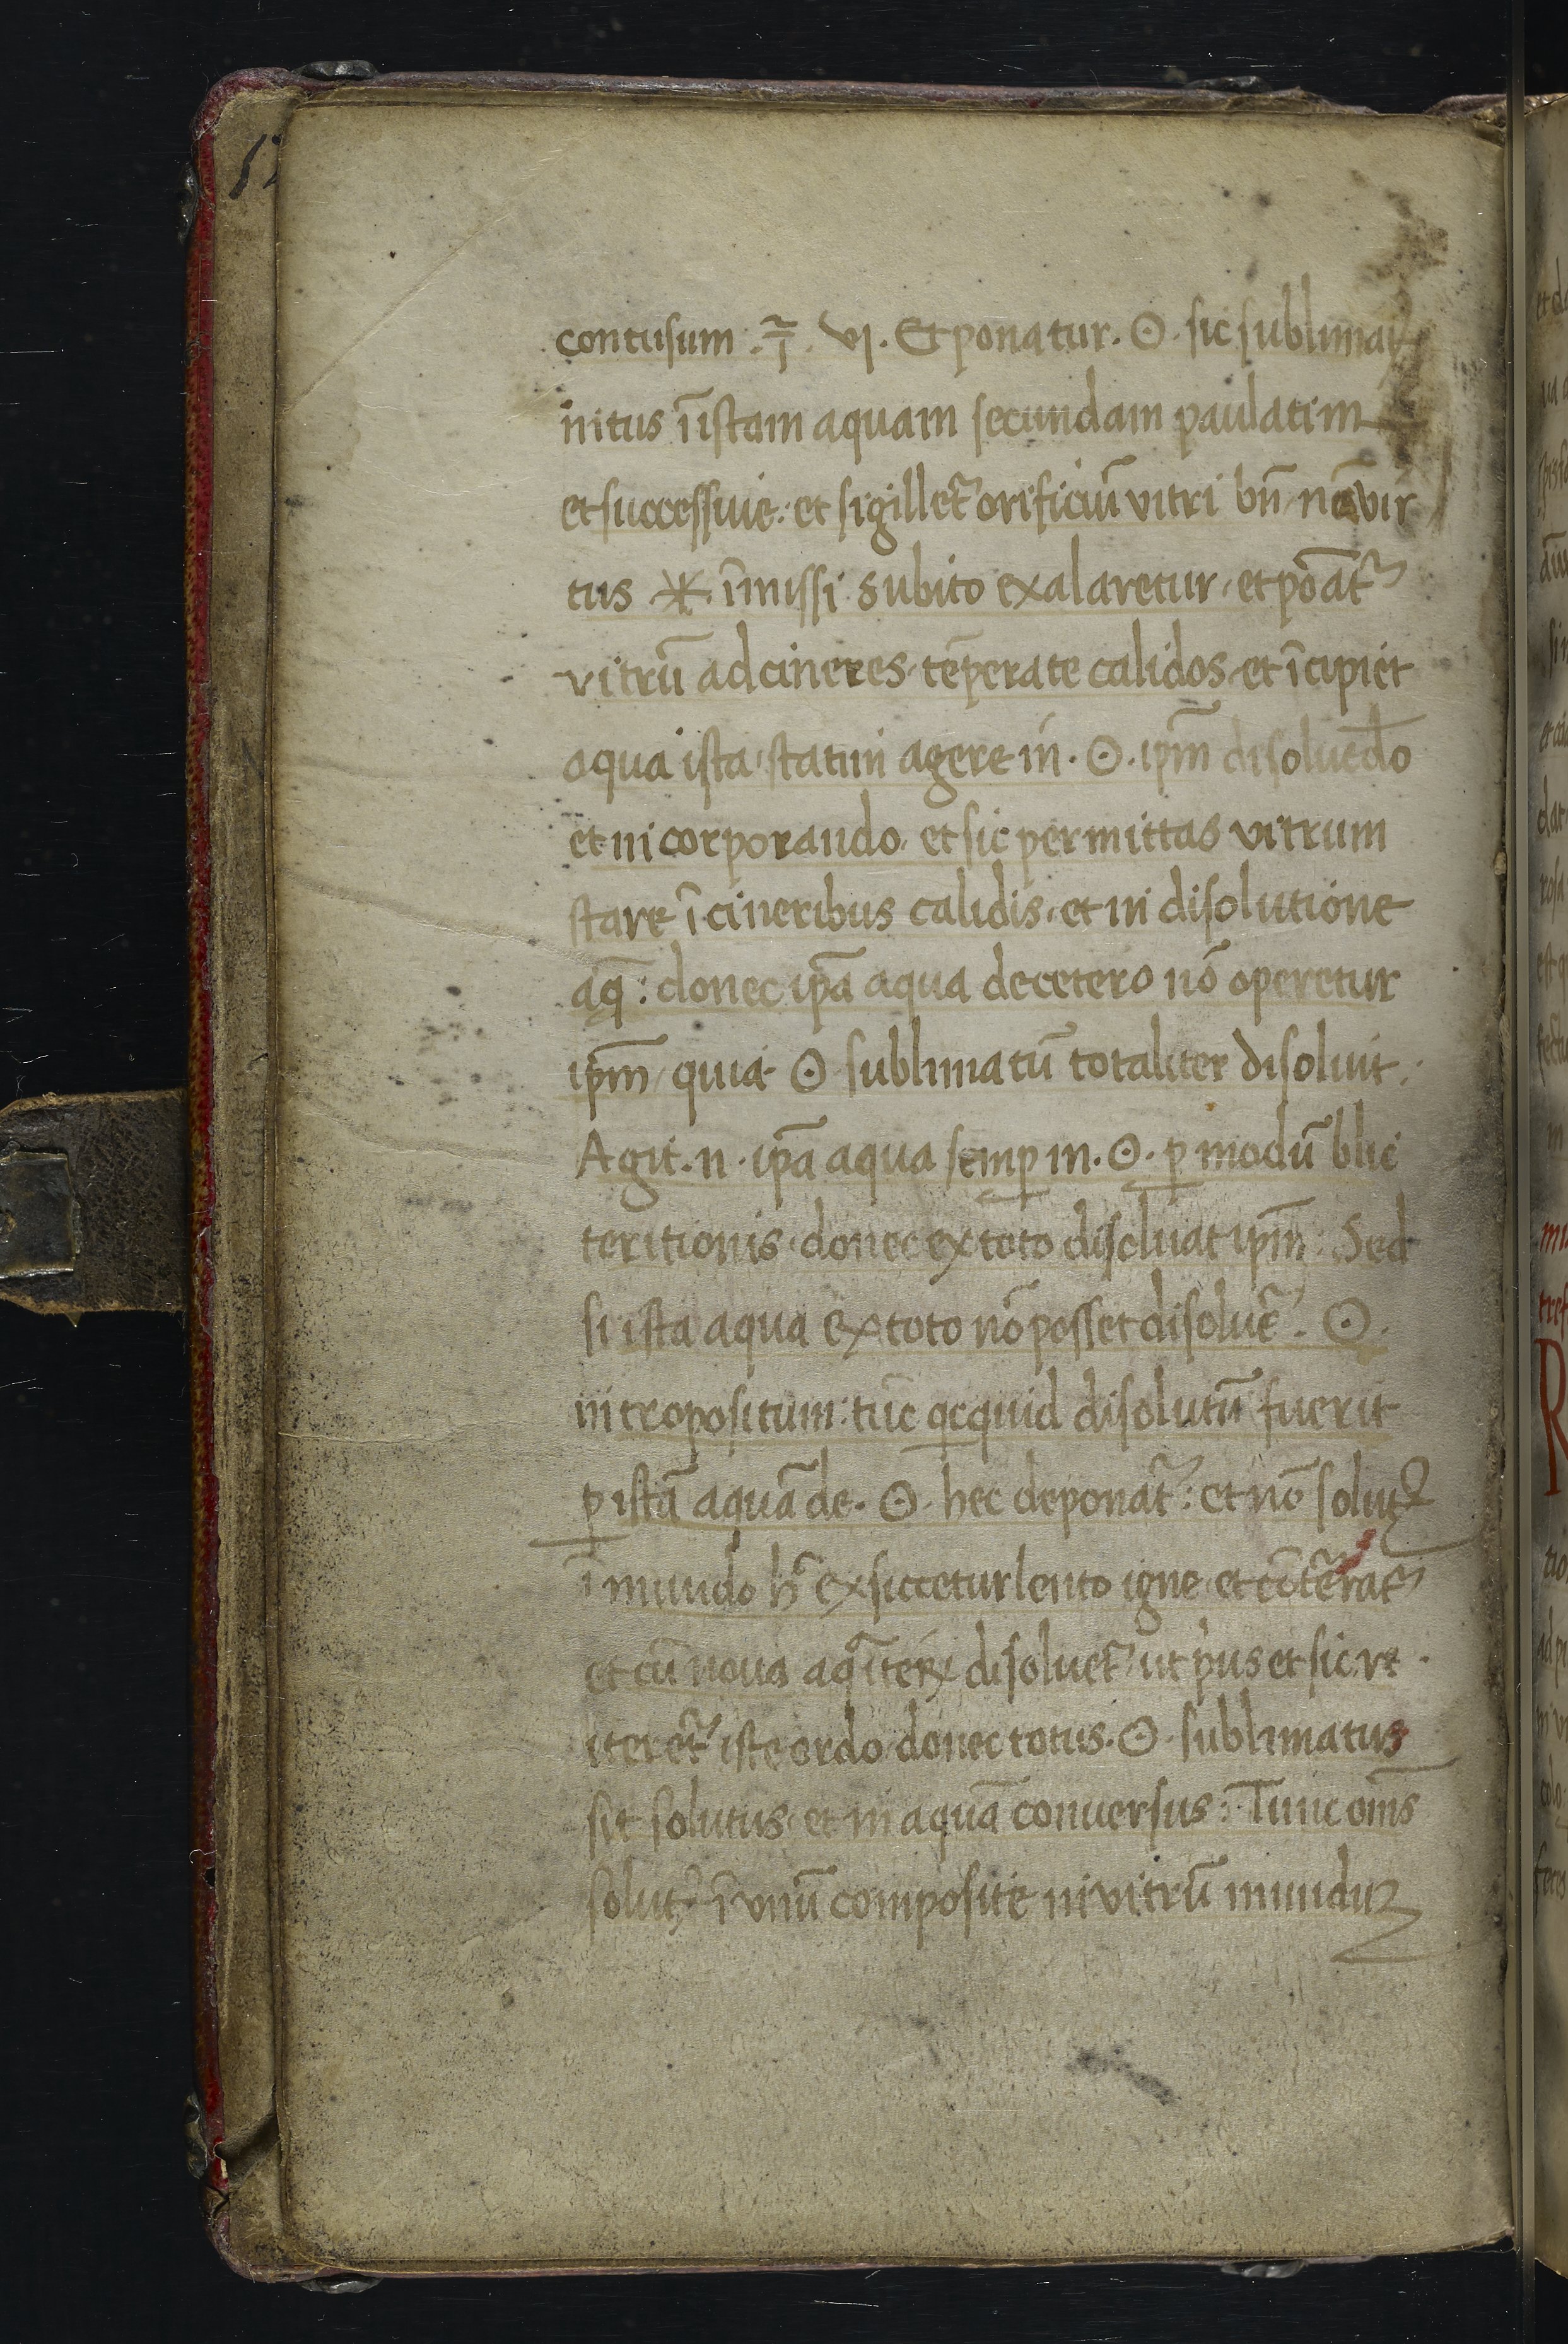 52
contusum .℥. vj. Et ponatur. ☉. sic sublimat
nitus ī istam aquam secundam paulatim
et successiue: et sigillet᷑ orificiū vitri bn̄ ne vir
tus .✶. īmissi subito exalaretur, et pōat᷑
vitrū ad cineres tēperate calidos et īcipiet
aqua ista statim agere in. ☉. ip̄m disoluēdo
et incorporando, et sic permittas vitrum
stare ī cineribus calidis, et in disolutione
aq̄: donec ip̄a aqua de cetero nō operetur
ip̄m, quia ☉ sublimatū totaliter disoluit.
Agit .n. ip̄a aqua semꝑ in. ☉. ꝑ modū blic
teritionis donec ex toto disoluat ip̄m: Sed
si ista aqua ex toto nō posset disoluē᷑. ☉.
intropositum: tūc qcquid disolutū fuerit
ꝑ istā aquā de. ☉. hec deponat᷑: et nō solutꝫ
ī mundo exsiccetur lento igne et cōterat᷑
et cū noua aq̄ iteꝝ disoluet᷑ ut pius et sic re
iteret᷑ iste ordo donec totus. ☉. sublimatus
sit solutus et in aquā conuersus: Tunc om̄s
solut᷑ ī vnū composite in vitrū munduꝫ